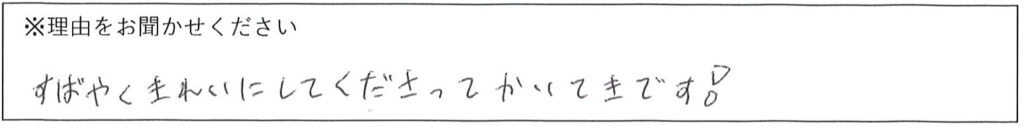 ※理由をお聞かせください
すばやくきれいにしてくださってかいてきです!